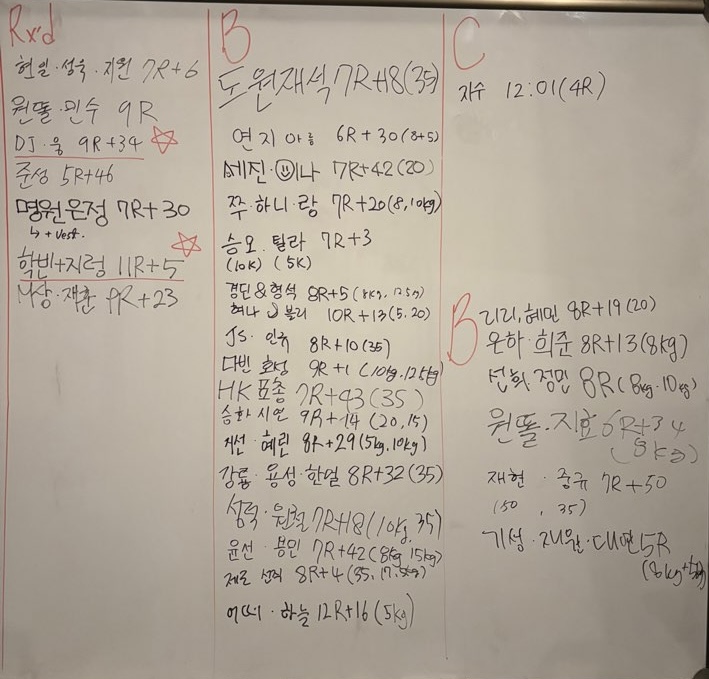 Rx'd
현일·성욱·지원 7R+6
원똘·민수 9R
DJ·웅 9R+34
준성 5R+46
명원은정 7R+30
↳ + vest.
학빈+지렁 11R+5
마상·재훈 9R+23
B
도원재석 7R+18(35)
연지 아름 6R+30(8+5)
예진·☺나 7R+42(20)
쭈·하니·랑 7R+20(8,10kg)
승오. 틸라 7R+3
(10K) (5K)
경딘&형석 8R+5(8kg, 12.5kg)
혀나 불리 10R+13(5.20)
JS· 인국 8R+10(35)
다빈 효성 9R+1 (10kg.12.5kg)
HK 표총 7R+43(35)
승화 시언 9R+14(20,15)
지선·혜린 8R+29(5kg,10kg)
강륭·용성·한얼 8R+32(35)
성덕·원철 7R+18(10kg,35)
윤선·봉인 7R+42(8kg 15kg)
제로 선희 8R+4(35, 17.5kg)
하늘 12R+16(5kg)
C
지수 12:01(4R)
B
리리, 혜민 8R+19(20)
은하·희준 8R+13(8kg)
선희·정민 8R(8kg·10kg)
원똘·지효 6R+34
(8kg)
재현·중규 7R+50
(50, 35)
기성·재원·대연 5R
(8kg+5kg)